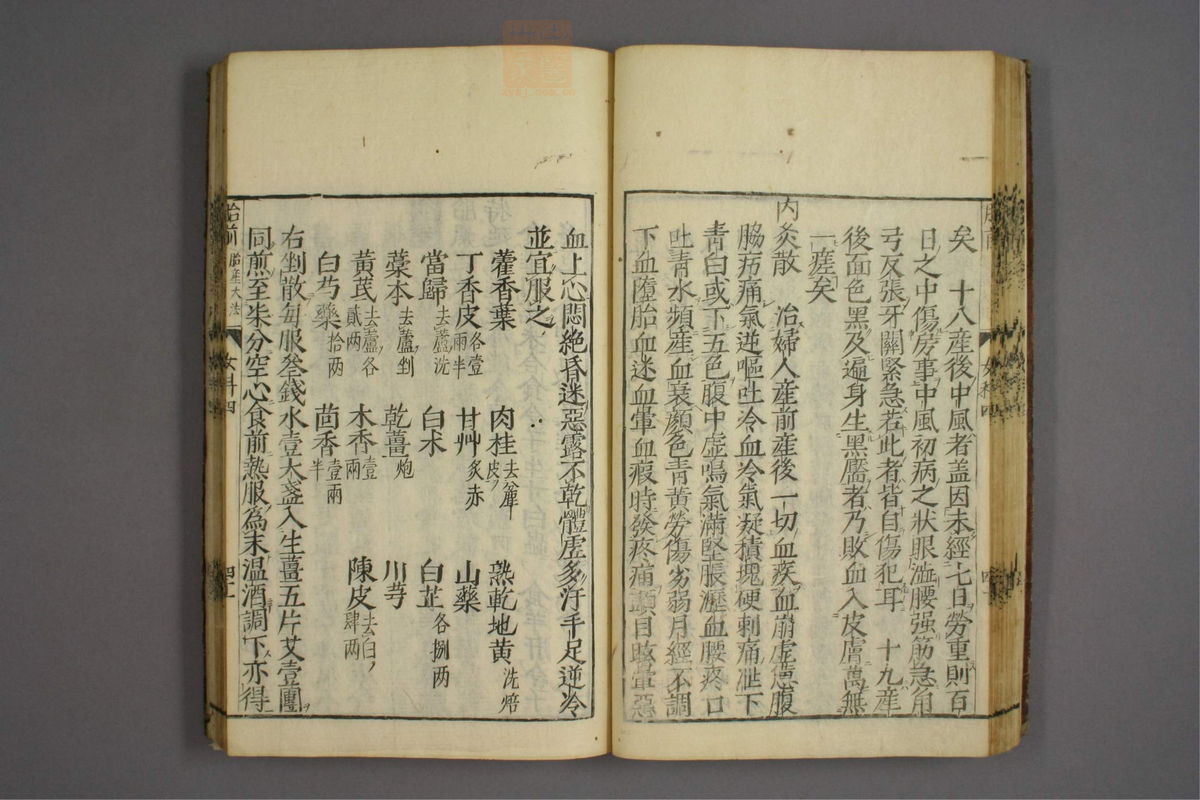 矣　十八産後中風者盖因未經七日勞重則百
日之中傷房事中風初病之状眼澁腰强筋急角
弓反張牙關緊急若此者皆自傷犯耳　十九産
後面色黑及遍身生黑靨者乃敗血入皮膚萬無
一瘥矣
内灸散　治婦人産前産後一切血疾血崩虚憊腹
脇疠痛氣逆嘔吐冷血冷氣凝積塊硬刺痛泄下
青白或下五色腹中虚鳴氣滿堅脹瀝血腰疼口
吐青水頻産血衰顔色青黄勞傷劣弱月經不調
下血墮胎血迷血暈血瘕時發疼痛頭目眩暈惡
血上心悶絶昏迷惡露不乾體虚多汗手足逆冷
並宜服之
藿香葉　肉桂去麄皮　熟乾地黄洗焙
丁香皮各壹兩半　甘艸炙赤　山藥
當歸去蘆洗　白朮　白芷各捌两
藁本去蘆剉　乾薑炮　川芎
黄茋去蘆各貳两　木香壹兩　陳皮去白肆两
白芍藥拾两　茴香壹兩半
右剉散每服叁錢水壹大盞入生薑五片艾壹團
同煎至柒分空心食前熱服為末温酒調下亦得
胎前　胎産大法　女科四